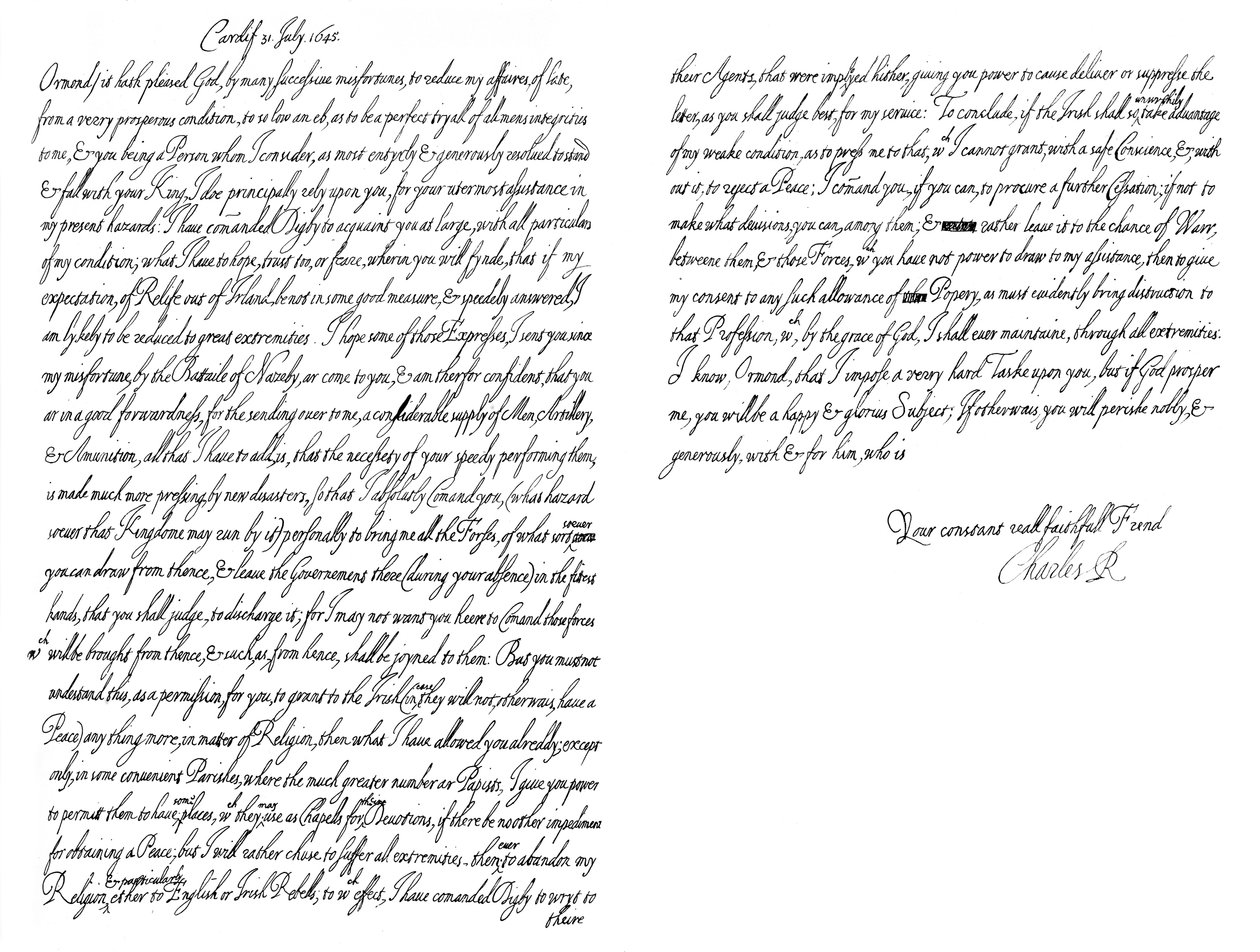 Cardif 31. July. 1645.
Ormond) it hath pleased God, by many successive misfortunes, to reduce my affaires, of late,
from a verry prosperous condition, to so low an eb, as to be a perfect tryall of all mens integrities
to me, & you being a Person whom I consider, as most entyrly & generously resolved to stand
& fall with your King, I doe principally rely upon you, for your utermost assistance in
my present hazards: I have com̄anded Digby to acquaint you at large, with all particulars
of my condition; what I have to hope, trust too, or feare, wherin you will fynde, that if my
expectation, of Relife out of Irland, be not in some good measure, & speedely answered, I
am lykely to be reduced to great extremities. I hope some of those Expresses, I sent you since
my misfortune, by the Battaile of Nazeby, ar come to you, & am therfor confident, that you
ar in a good forwardness, for the sending over to me, a considerable supply of Men, Artillery,
& Amunition, all that I have to add, is, that the necessety of your speedy performing them,
is made much more pressing, by new disasters, so that I absolutly Comand you, (what hazard
soever that Kingdome may run by it) personally to bring me all the Forses, of what sort soever
you can draw from thence, & leave the Governement there (during your absence) in the fittest
hands, that you shall judge, to discharge it; for I may not want you heere to Comand those forces
wch will be brought from thence, & such, as, from hence, shall be joyned to them: But you must not
understand this, as a permission, for you, to grant to the Irish (in case they will not, otherwais, have a
Peace) any thing more, in matter of Religion, then what I have allowed you alreddy; except
only, in some convenient Parishes, where the much greater number ar Papists, I give you power
to permitt them to have some places, wch they may use as Chapells for theire Devotions, if there be no other impediment
for obtaining a Peace; but I will rather chuse to suffer all extremities, then ever to abandon my
Religion, & particularly ether to English or Irish Rebells; to wch effect, I have comanded Digby to wryt to
theire
their Agents, that were imployed hither, giving you power to cause deliver or suppresse the
letter, as you shall judge best, for my service: To conclude, if the Irish shall so unworthily take advantage
of my weake condition, as to press me to that, wch I cannot grant, with a safe Conscience, & with
out it, to reject a Peace; I com̄and you, if you can, to procure a further Cessation; if not to
make what divisions, you can, among them; & rather leave it to the chance of Warr,
betweene them & those Forces, wch you have not power to draw to my assistance, then to give
my consent to any such allowance of Popery, as must evidently bring distruction to
that Profession, wch, by the grace of God, I shall ever maintaine, through all extremities.
I know, Ormond, that I impose a verry hard Taske upon you, but if God prosper
me, you will be a happy & glorius Subject; If otherwais, you will perishe nobly, &
generously, with & for him, who is
Your constant reall faithfull Frend
Charles R